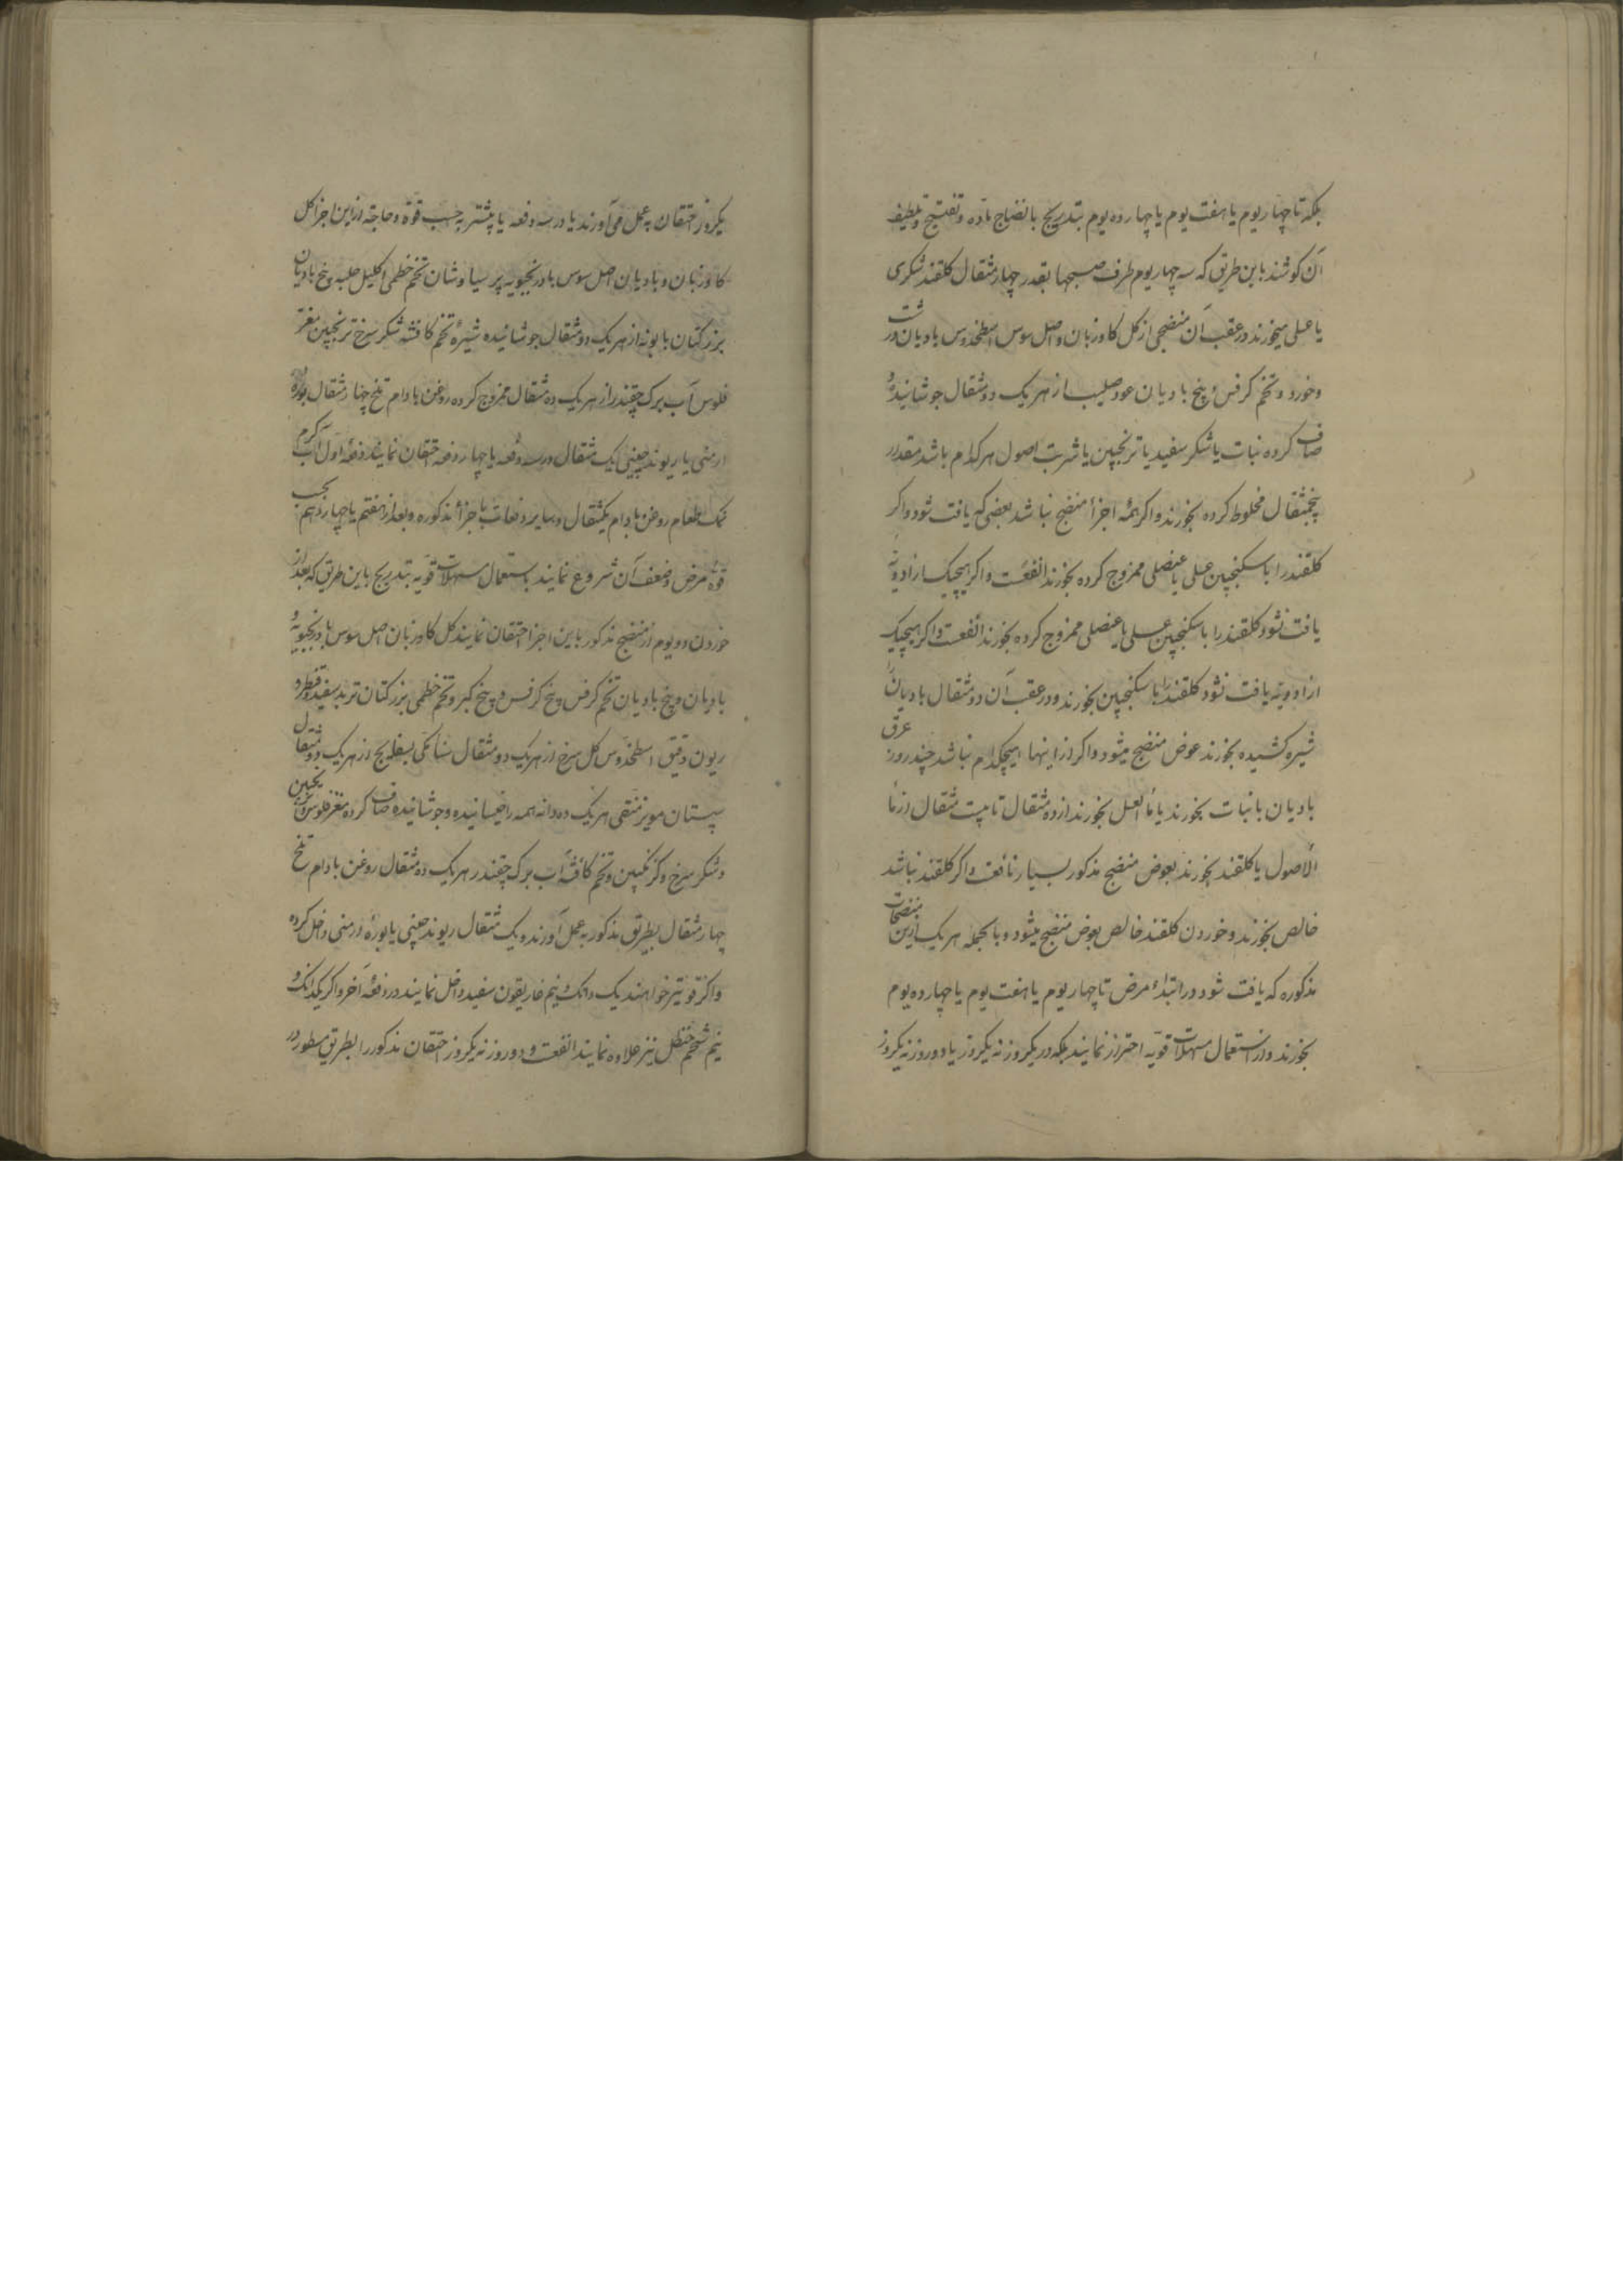 بلکه تا چهار یوم یا هفت یوم یا چهارده یوم بتدریج بانضاج ماده و تفتیح و تلطیف
آن کوشند باین طریق که سه چهار یوم طرف صبحها بقدر چهار مثقال کلقند شکری
یا عسلی میخورند در عقب آن منضجی از کل کاوزبان و اصل سوس اسطخدوس بادیان درشت
و خورد و تخم کرفس و بیخ بادیان عود صلیب از هر یک دو مثقال جوشانیده و
صاف کرده نبات یا شکر سفید یا ترنجبین یا شربت اصول هر کدام باشد مقدار
پنجمثقال مخلوط کرده بخورند و اکر همه اجزأ منضج نباشد بعضی که یافت شود و اکر
کلقند را با سکنجبین عسلی یا عنصلی ممزوج کرده بخورند انفعست و اکر هیچیک از ادویه
یافت نشود کلقند را با سکنجبین عسلی یا عنصلی ممزوج کرده بخورند انفعست و اکر هیچیک
از ادویه یافت نشود کلقند را با سکنجبین بخورند و در عقب آن دو مثقال بادیان
شیره کشیده بخورند عوض منضج میشود و اکر از اینها هیچکدام نباشد چند روز عرق
بادیان با نبات بخورند یا مأ العسل بخورند از ده مثقال تا بیست مثقال از مأ
الاصول با کلقند بخورند بعوض منضج مذکور بسیار نافعست و اکر کلقند نباشد
خالص بخورند و خوردن کلقند خالص بعوض منضج میشود و بالجمله هر یک ازین منضجات
مذکوره که یافت شود در ابتدأ مرض تا چهار یوم یا هفت یوم یا چهارده یوم
بخورند و از استعمال مسهلات قویه احتراز نمایند بلکه در یکروز نه یکروز یا دو روز نه یکروز
یکروز احتقان به عمل می‌آورند یا در سه دفعه یا بیشتر به حسب قوة و حاجة از این اجزا کل
کاوزبان و بادیان اصل سوس بادرنجبویه پرسیاوشان تخم خطمی اکلیل حلبه بیخ بادیان
بزر کتان بابونه از هر یک دو مثقال جوشانیده شیرهٔ تخم کافشه شکر سرخ ترنجبین مغز
فلوس آب برک چقندر از هر یک ده مثقال ممزوج کرده روغن بادام تلخ چهار مثقال بورهٔ
ارمنی یا ریوند چینی یک مثقال در سه دفعه یا چهار دفعه احتقان نمایند دفعهٔ اول آب کرم
نمک طعام روغن بادام یکمثقال و سایر دفعات با جزأ مذکوره و بعد از هفتم یا چهاردهم بحسب
قوهٔ مرض و ضعف آن شروع نمایند باستعمال مسهلات قویه بتدریج باین طریق که بعد از
خوردن دو یوم از منضج مذکور باین اجزا احتقان نمایند کل کاوزبان اصل سوس بادرنجبویه و
بادیان و بیخ بادیان تخم کرفس و بیخ کرفس و بیخ کبر و تخم خطمی بزر کتان تربد سفید و قنطر
ریون دقیق اسطخدوس کل سرخ از هر یک دو مثقال سنأ مکی بسفایج از هر یک دو مثقال
سپستان مویز منقی هر یک ده دانه همه را خیسانیده و جوشانیده صاف کرده مغز فلوس و ترنجبین
و شکر سرخ و کزنکبین و تخم کافشه آب برک چقندر هر یک ده مثقال روغن بادام تلخ
چهار مثقال بطریق مذکور به عمل آورند و یک مثقال ریوند چینی یا بورهٔ ارمنی داخل کرده
و اکر قویتر خواهند یک دانک و نیم غاریقون سفید داخل نمایند در دفعهٔ آخر و اکر یکدانک و
نیم شحم حنظل نیز علاوه نمایند انفعست و دو روز نه یکروز احتقان مذکور را بطریق مسطور در